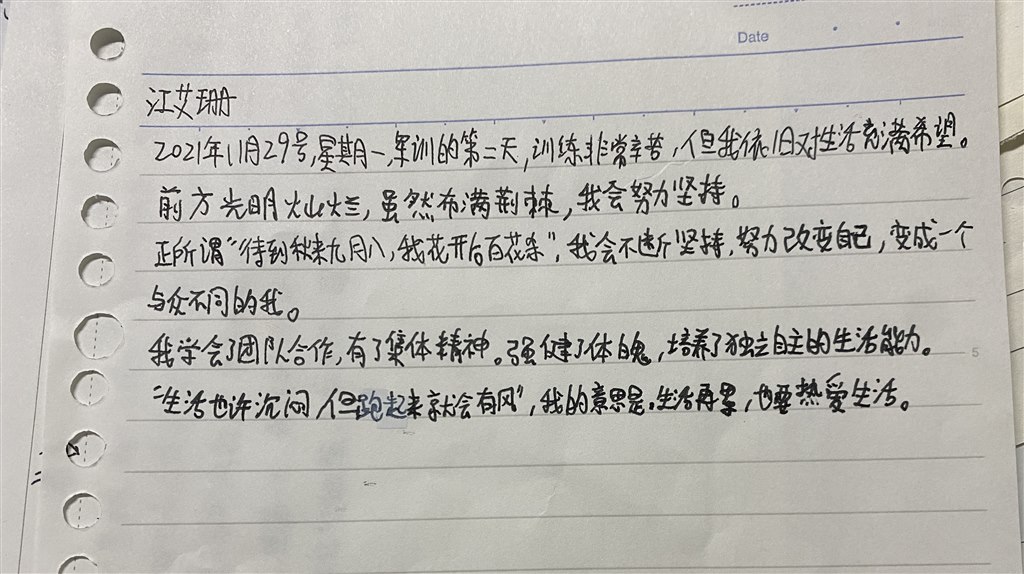 Date
江艾珊
2021年11月29号,星期一,军训的第二天,训练非常辛苦,但我依旧对生活充满希望。
前方光明灿烂,虽然布满荆棘,我会努力坚持。
正所谓“待到秋来九月八,我花开后百花杀”,我会不断坚持,努力改变自己,变成一个
与众不同的我。
我学会了团队合作,有了集体精神。强健了体魄,培养了独立自主的生活能力。
“生活也许沉闷 但跑起来就会有风”,我的意思是.生活再累,也要热爱生活。
5